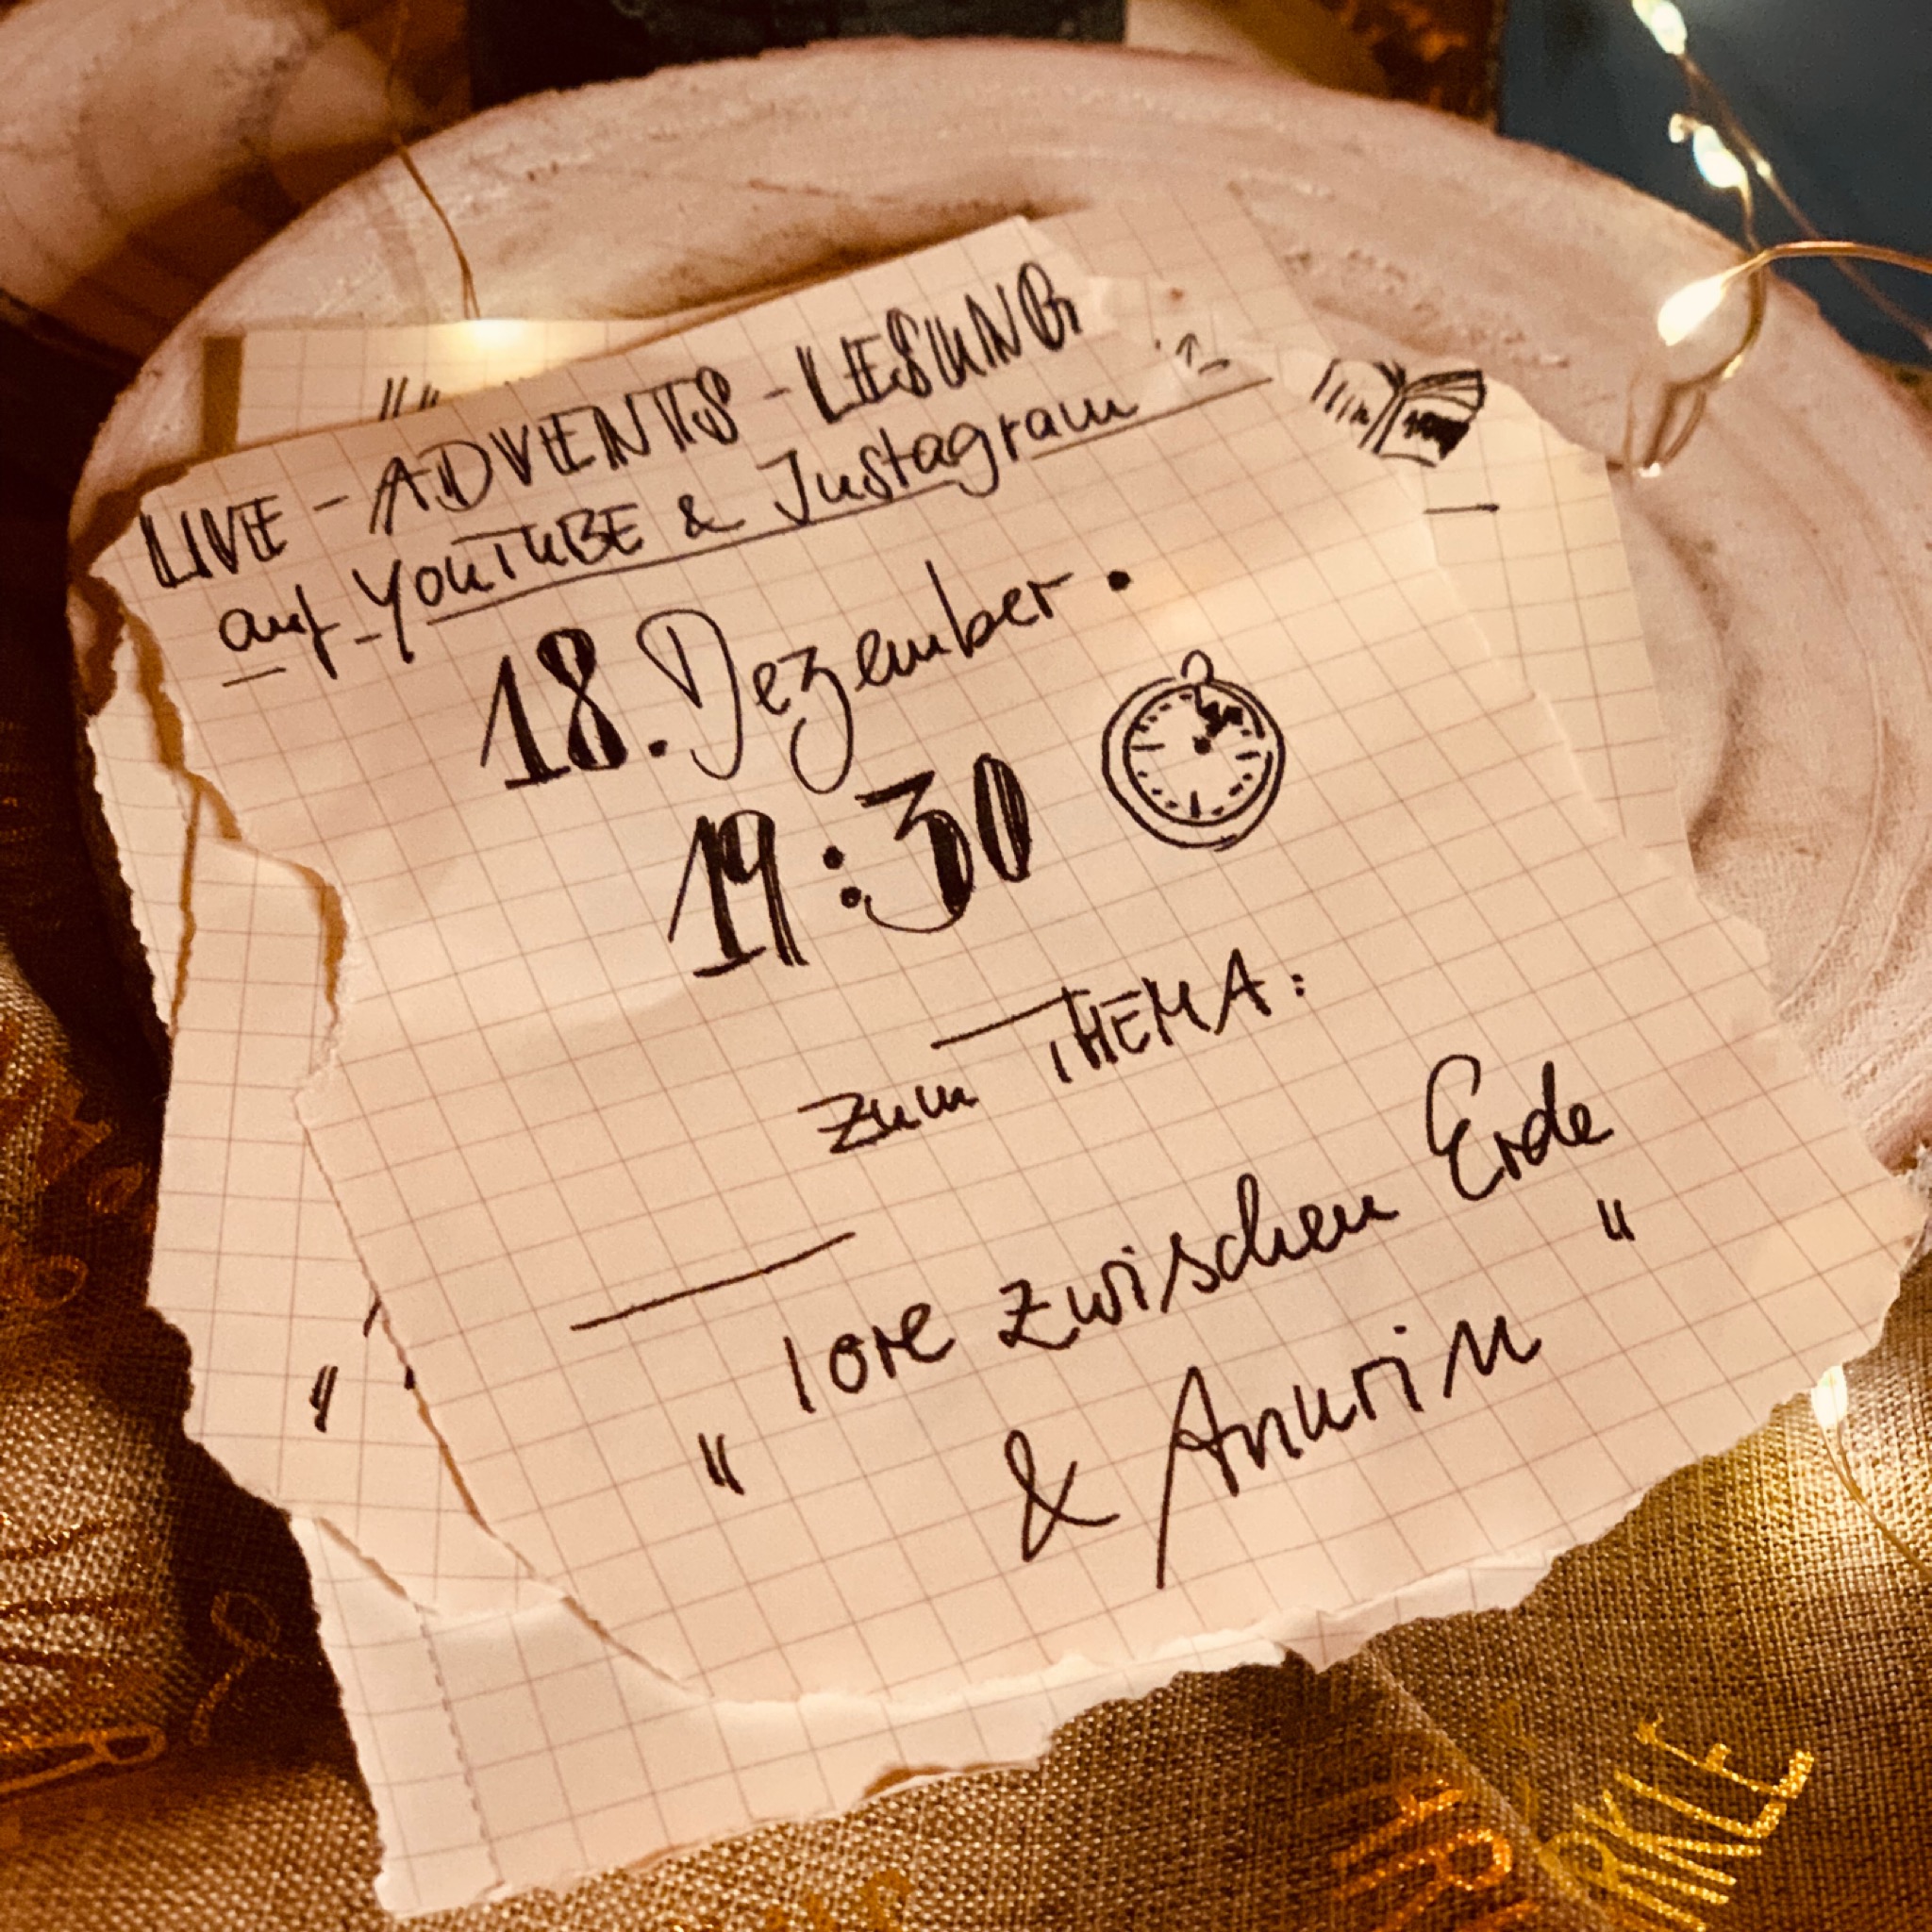 LIVE - ADVENTS - LESUNG
auf YouTUBE & Instagram
18. Dezember.
19:30
zum THEMA:
" Tore zwischen Erde
& Anurin "
RKLE